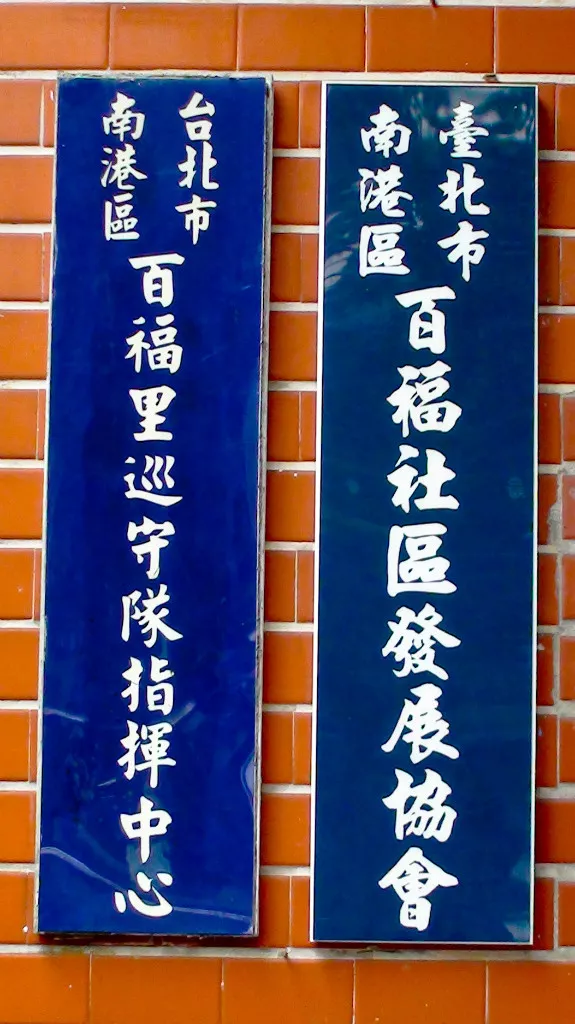 臺北市
南港區
百福社區發展協會
台北市
南港區
百福里巡守隊指揮中心